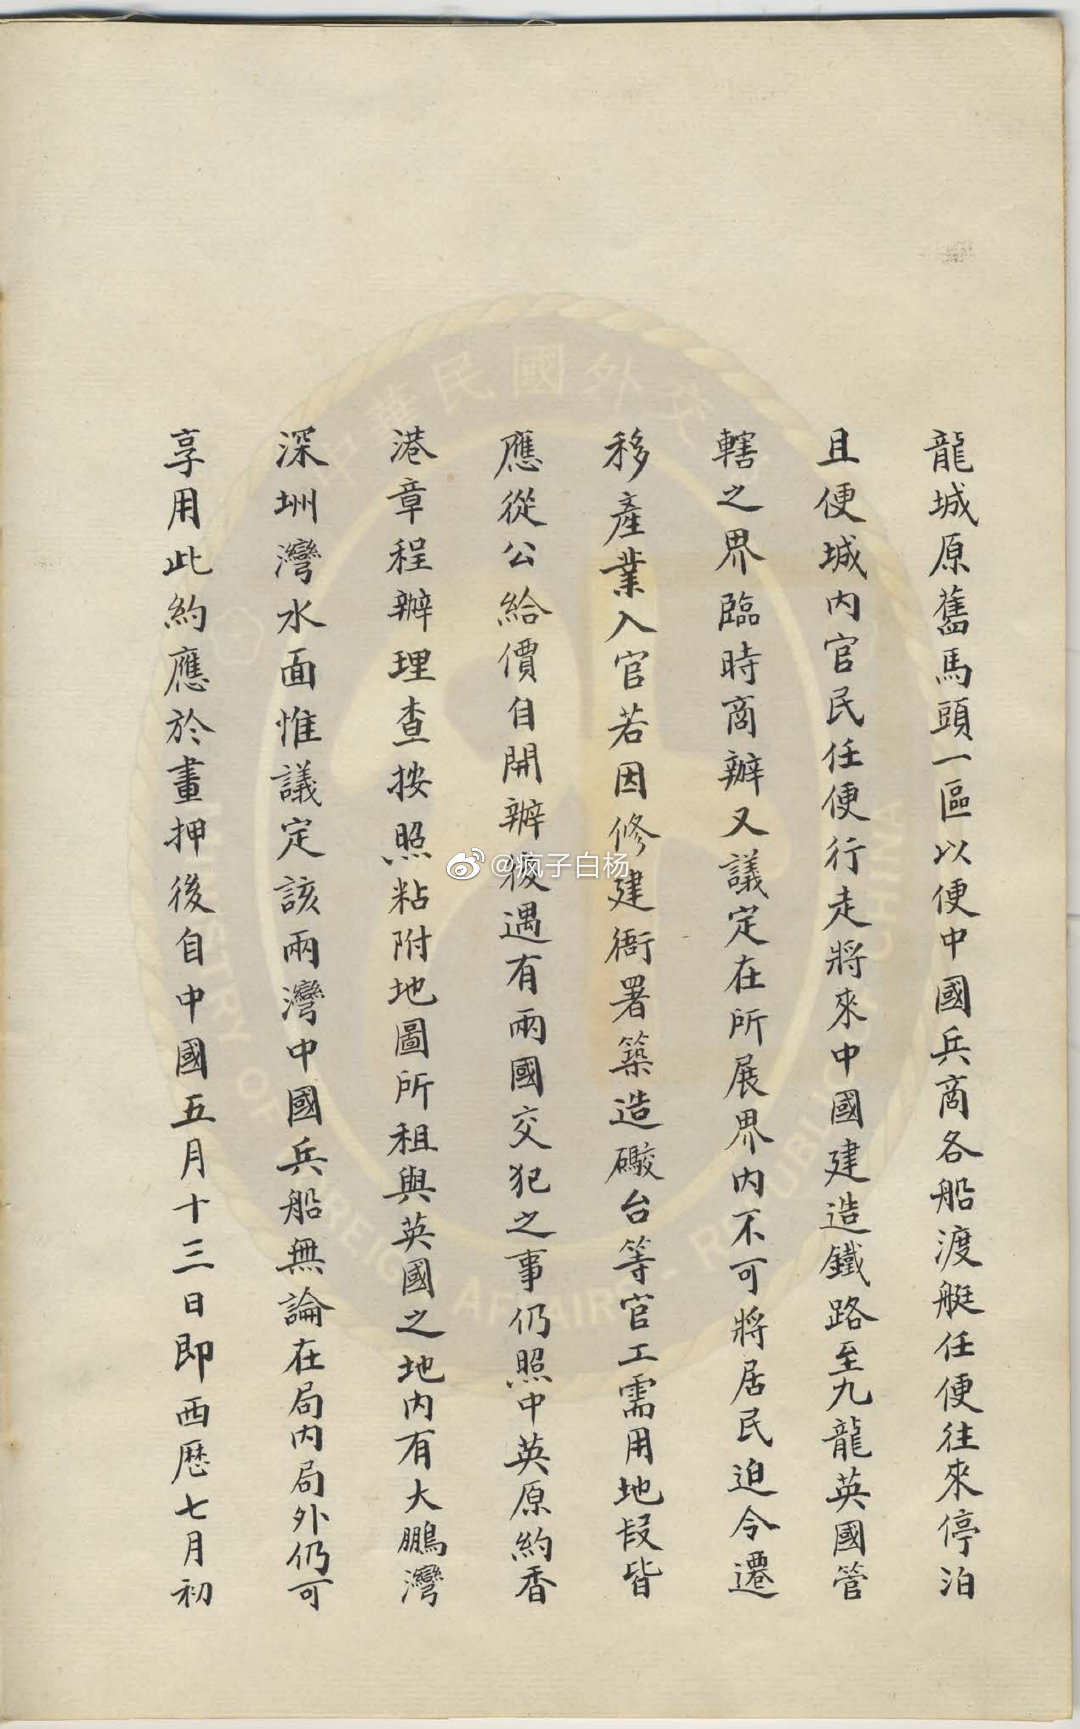 龍城原舊馬頭一區以便中國兵商各船渡艇任便往來停泊
且便城內官民任便行走將來中國建造鐵路至九龍英國管
轄之界臨時商辦又議定在所展界內不可將居民迫令遷
移產業入官若因修建衙署築造礮台等官工需用地段皆
應從公給價自開辦後遇有兩國交犯之事仍照中英原約香
港章程辦理查按照粘附地圖所租與英國之地內有大鵬灣
深圳灣水面惟議定該兩灣中國兵船無論在局內局外仍可
享用此約應於畫押後自中國五月十三日即西歷七月初
中華民國外交
MINISTRY OF FOREIGN AFFAIRS REPUBLIC OF CHINA
@疯子白杨